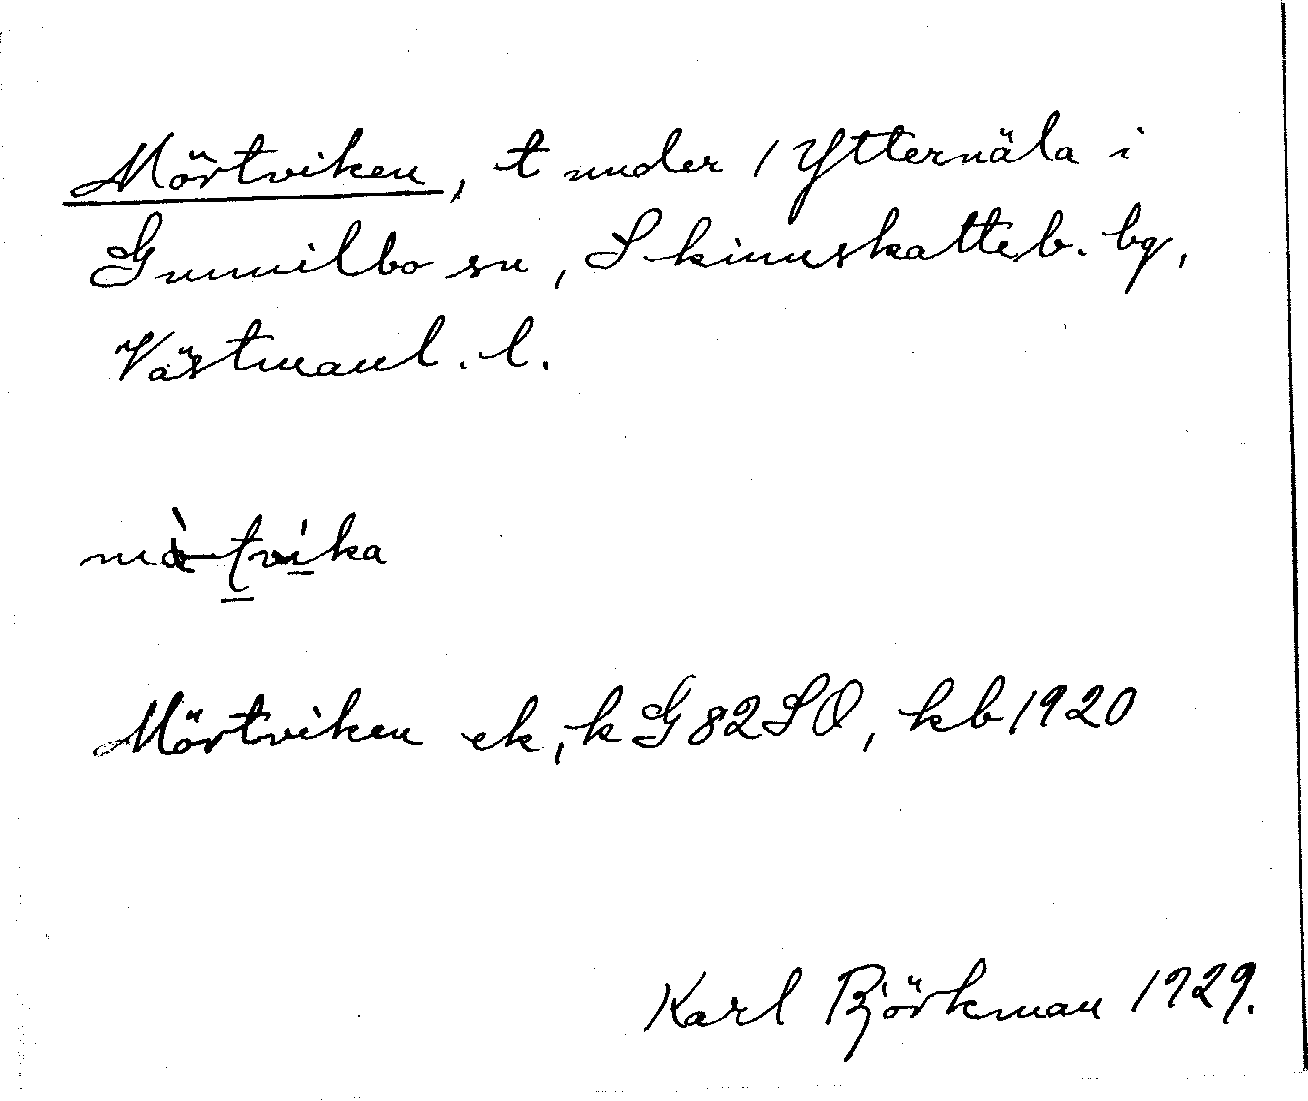 Mörtviken, t under 1 Ytternäla i
Gunnilbo sn, Skinnskatteb. bg,
Västmanl. l.
Mörtviken ek, k G 82 SO, kb 1920
Karl Björkman 1929.